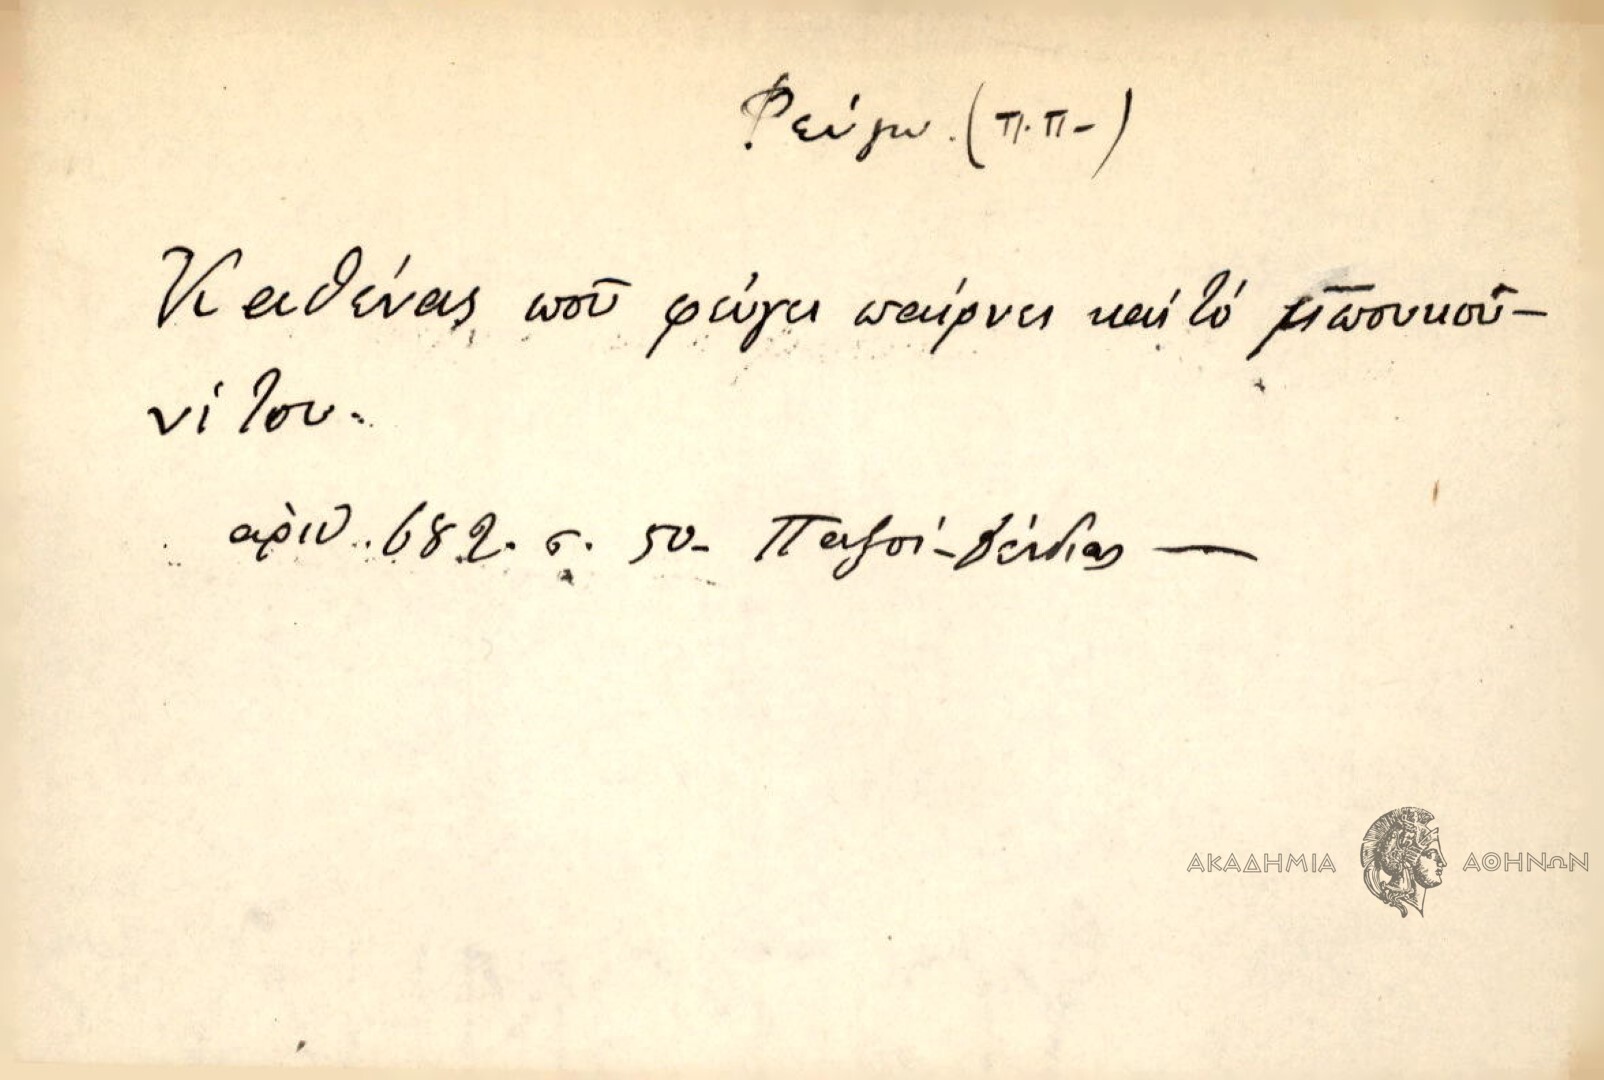 Φεύγω. (π.π-)
Καθένας ποῦ φεύγει παίρνει καί τό μπουκού-
νί του.
ἀριθ. 682. σ. 50- Παξοί-
ΑΚΑΔΗΜΙΑ ΑΘΗΝΩΝ